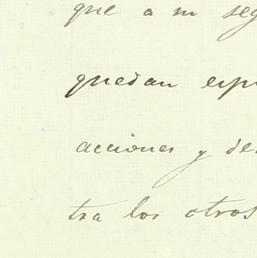 que a m seg
quedan esp
acciones y de
tra los otros